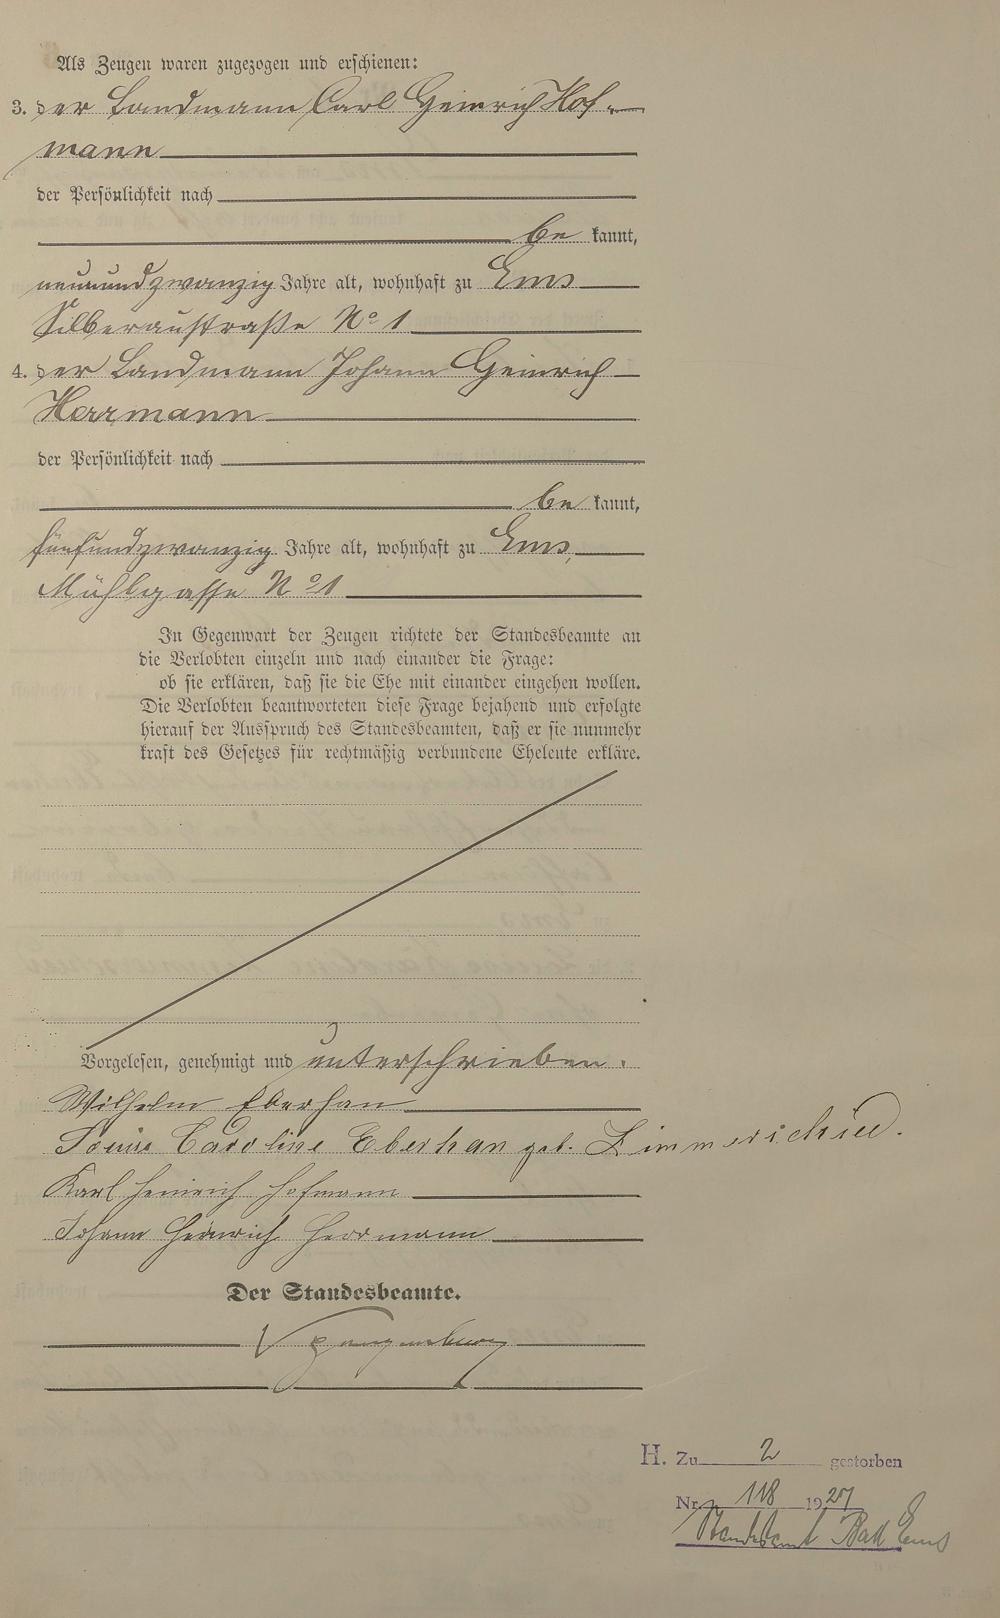 Als Zeugen waren zugezogen und erschienen:
3. der Landmann Carl Heinrich Hof-
mann
der Persönlichkeit nach
be kannt,
neunundzwanzig Jahre alt, wohnhaft zu Ems
Silberaustraße No 1
4. der Landmann Johann Heinrich
Herrmann
der Persönlichkeit nach
be kannt,
fünfundzwanzig Jahre alt, wohnhaft zu Ems,
Mühlgasse No 1
In Gegenwart der Zeugen richtete der Standesbeamte an
die Verlobten einzeln und nach einander die Frage:
ob sie erklären, daß sie die Ehe mit einander eingehen wollen.
Die Verlobten beantworteten diese Frage bejahend und erfolgte
hierauf der Ausspruch des Standesbeamten, daß er sie nunmehr
kraft des Gesetzes für rechtmäßig verbundene Eheleute erkläre.
Vorgelesen, genehmigt und unterschrieben.
Wilhelm Eberhan
Caroline Eberhan geb. Zimmerschied.
Karl Heinrich Hofmann
Johann Heinrich Herrmann
Der Standesbeamte.
H. Zu 2 gestorben
Nr. 118 1927
Standesamt Bad Ems